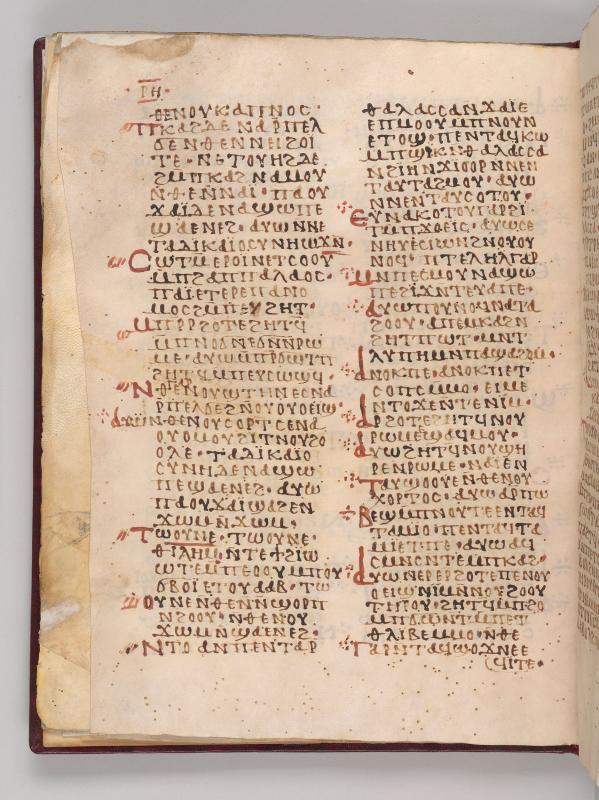 ⲣⲏ
ⲑⲉⲛⲟⲩⲕⲁⲡⲛⲟⲥ·
ⲡⲕⲁϩⲇⲉⲛⲁⲣⲡⲉⲗ
ϭⲉⲛⲑⲉⲛⲛⲉⲓϩⲟⲓ
ⲧⲉ·ⲛⲉⲧⲟⲩⲏϩⲇⲉ
ϩⲙⲡⲕⲁϩⲛⲁⲙⲟⲩ
ⲛ·ⲑⲉⲛⲛⲁⲓ·ⲡⲁⲟⲩ
ϫⲁⲓⲇⲉⲛⲁϣⲱⲡⲉ
ϣⲁⲉⲛⲉϩ·ⲁⲩⲱⲛⲛⲉ
ⲧⲁⲇⲓⲕⲁⲓⲟⲥⲩⲛⲏⲱϫⲛ·
ⲥⲱⲧⲙⲉⲣⲟⲓⲛⲉⲧⲥⲟⲟⲩ
ⲙⲡϩⲁⲡⲡⲁⲗⲁⲟⲥ·
ⲡⲁⲓⲉⲧⲉⲣⲉⲡⲁⲛⲟ
ⲙⲟⲥϩⲙⲡⲉⲩϩⲏⲧ·
ⲙⲡⲣⲣϩⲟⲧⲉϩⲏⲧϥ
ⲙⲡⲛⲟϭⲛⲉϭⲛⲛⲣⲱ
ⲙⲉ·ⲁⲩⲱⲙⲡⲣϭⲱⲧⲡ
ϩⲏⲧϥⲙⲡⲉⲩⲥⲱϣϥ·
ⲛ·ⲑⲉⲛⲟⲩϣⲧⲏⲛⲉⲥⲛⲁ
ⲣⲡⲉⲗϭⲉϩⲛⲟⲩⲟⲩⲟⲉⲓϣ
ⲁⲩⲱⲛ·ⲑⲉⲛⲟⲩⲥⲟⲣⲧⲥⲉⲛⲁ
ⲟⲩⲟⲙⲟⲩϩⲓⲧⲛⲟⲩϩⲟ
ⲟⲗⲉ·ⲧⲁⲇⲓⲕⲁⲓⲟ
ⲥⲩⲛⲏⲇⲉⲛⲁϣⲱ
ⲡⲉϣⲁⲉⲛⲉϩ·ⲁⲩⲱ
ⲡⲁⲟⲩϫⲁⲓϣⲁϩⲉⲛ
ϫⲱⲙⲛϫⲱⲙ·
ⲧⲱⲟⲩⲛⲉ·ⲧⲱⲟⲩⲛⲉ·
ⲑⲓⲗⲏⲙⲛⲧⲉϯϩⲓⲱ
ⲱⲧⲉⲙⲡⲉⲟⲟⲩⲙⲡⲟⲩ
ϭⲃⲟⲓⲉⲧⲟⲩⲁⲁⲃ·ⲧⲱ
ⲟⲩⲛⲉⲛⲑⲉⲛⲛϣⲟⲣⲡ
ⲛϩⲟⲟⲩ·ⲛⲑⲉⲛⲟⲩ
ϫⲱⲙⲛϣⲁⲉⲛⲉϩ·
ⲛⲧⲟⲁⲛⲡⲉⲛⲧⲁⲣ
ⲑⲁⲗⲁⲥⲥⲁⲛϫⲁⲓⲉ
ⲉⲡⲙⲟⲟⲩⲙⲡⲛⲟⲩⲛ
ⲉⲧⲟϣ·ⲡⲉⲛⲧⲁϥⲕⲱ
ⲙⲡϣⲓⲕⲛⲑⲁⲗⲁⲥⲥⲁ
ⲛϩⲓⲏⲛϫⲓⲟⲟⲣⲛⲛⲉⲛ
ⲧⲁⲩⲧⲁϩⲙⲟⲩ·ⲁⲩⲱ
ⲛⲛⲉⲛⲧⲁⲩⲥⲟⲧⲟⲩ·
ⲉⲩⲛⲁⲕⲟⲧⲟⲩⲅⲁⲣϩⲓ
ⲧⲙⲡϫⲟⲉⲓⲥ·ⲁⲩⲱⲥⲉ
ⲛⲏⲩⲉⲥⲓⲱⲛϩⲛⲟⲩⲟⲩ
ⲛⲟϥ·ⲡⲧⲉⲗⲏⲗⲅⲁⲣ
ⲙⲛⲡⲉⲥⲙⲟⲩⲛⲁϣⲱ
ⲡⲉϩⲓϫⲛⲧⲉⲩⲁⲡⲉ·
ⲁⲩⲱⲡⲟⲩⲛⲟϥⲛⲁⲧⲁ
ϩⲟⲟⲩ·ⲁⲡⲉⲙⲕⲁϩⲛ
ϩⲏⲧⲡⲱⲧ·ⲙⲛⲧ
ⲗⲩⲡⲏⲙⲛⲡⲁϣⲁϩⲟⲙ·
ⲁⲛⲟⲕⲡⲉ·ⲁⲛⲟⲕⲡⲉⲧ
ⲥⲟⲡⲥⲙⲙⲟ·ⲉⲓⲙⲉ
ⲛⲧⲟϫⲉⲛⲧⲉⲛⲓⲙ·
ⲁⲣϩⲟⲧⲉϩⲏⲧϥⲛⲟⲩ
ⲣⲱⲙⲉⲉϣⲁϥⲙⲟⲩ·
ⲁⲩⲱϩⲏⲧϥⲛⲟⲩϣⲏ
ⲣⲉⲛⲣⲱⲙⲉ·ⲛⲁⲓⲉⲛ
ⲧⲁⲩϣⲟⲟⲩⲉⲛⲑⲉⲛⲟⲩ
ⲭⲟⲣⲧⲟⲥ·ⲁⲩⲱⲁⲣⲡⲱ
ⲃϣⲙⲡⲛⲟⲩⲧⲉⲉⲛⲧⲁϥ
ⲧⲁⲙⲓⲟ·ⲡⲉⲛⲧⲁϥⲧⲁ
ⲙⲓⲉⲧⲡⲉ·ⲁⲩⲱⲁϥ
ⲥⲙⲛⲥⲛⲧⲉⲙⲡⲕⲁϩ·
ⲁⲩⲱⲛⲉⲣⲉⲣϩⲟⲧⲉⲡⲉⲛⲟⲩ
ⲟⲉⲓϣⲛⲓⲙⲛⲛⲟⲩϩⲟⲟⲩ
ⲧⲏⲣⲟⲩ·ϩⲏⲧϥⲙⲡϩⲟ
ⲙⲡϭⲱⲛⲧⲙⲡⲉⲧ
ⲑⲗⲓⲃⲉⲙⲙⲟ·ⲛⲑⲉ
ⲅⲁⲣⲛⲧⲁϥϣⲟϫⲛⲉⲉ
ϥⲓⲧⲉ·